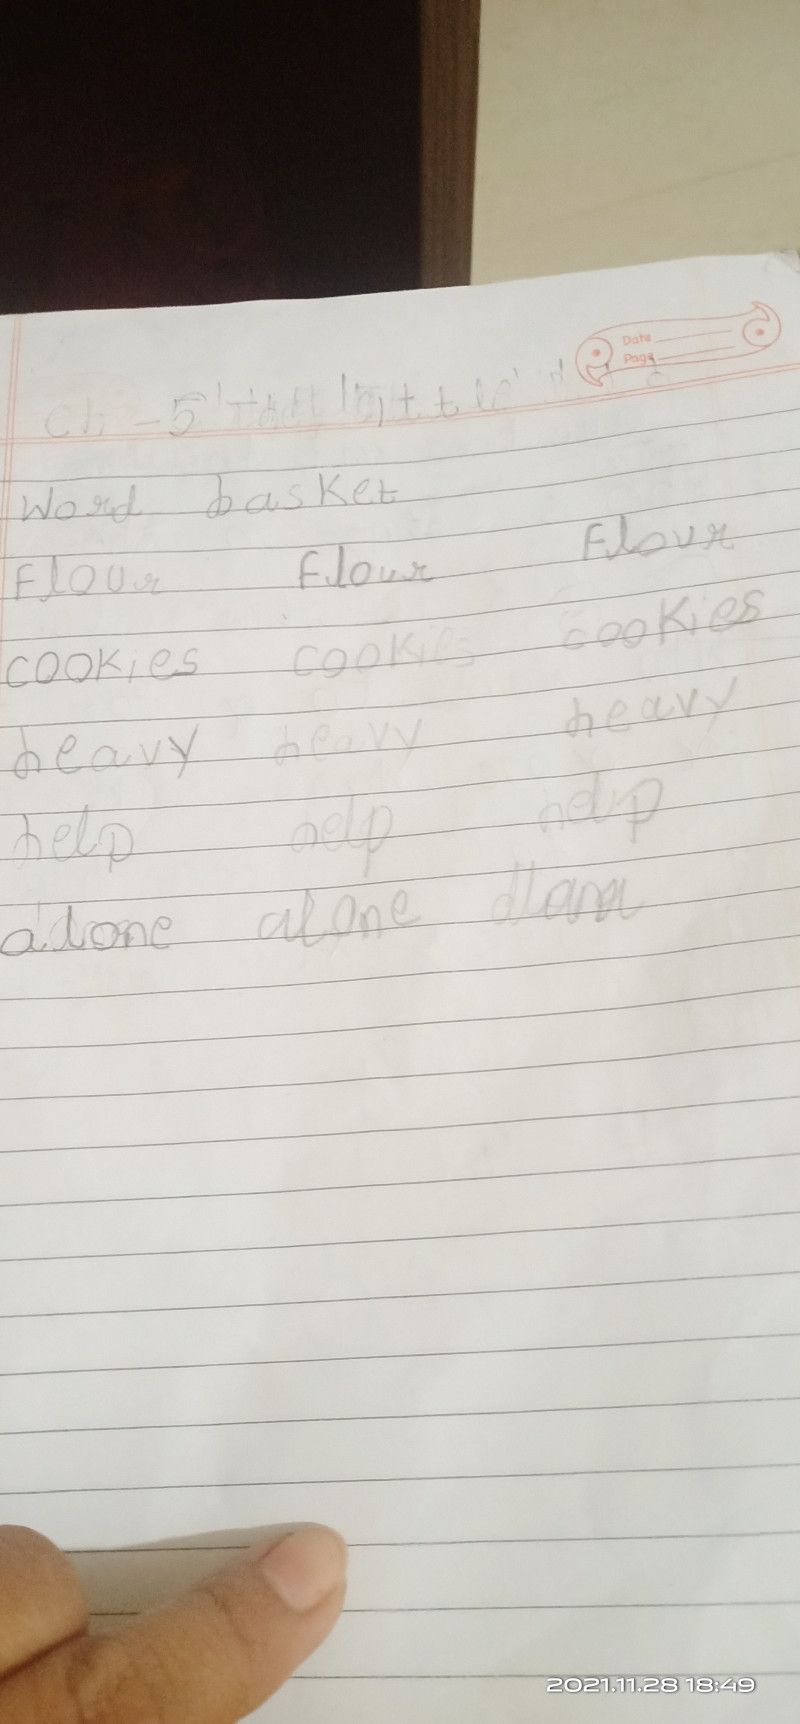 Date
Page
Ch - 5
Word basket
Flour Flour Flour
cookies cookies cookies
heavy heavy heavy
help help help
alone alone
2021.11.28 18:49